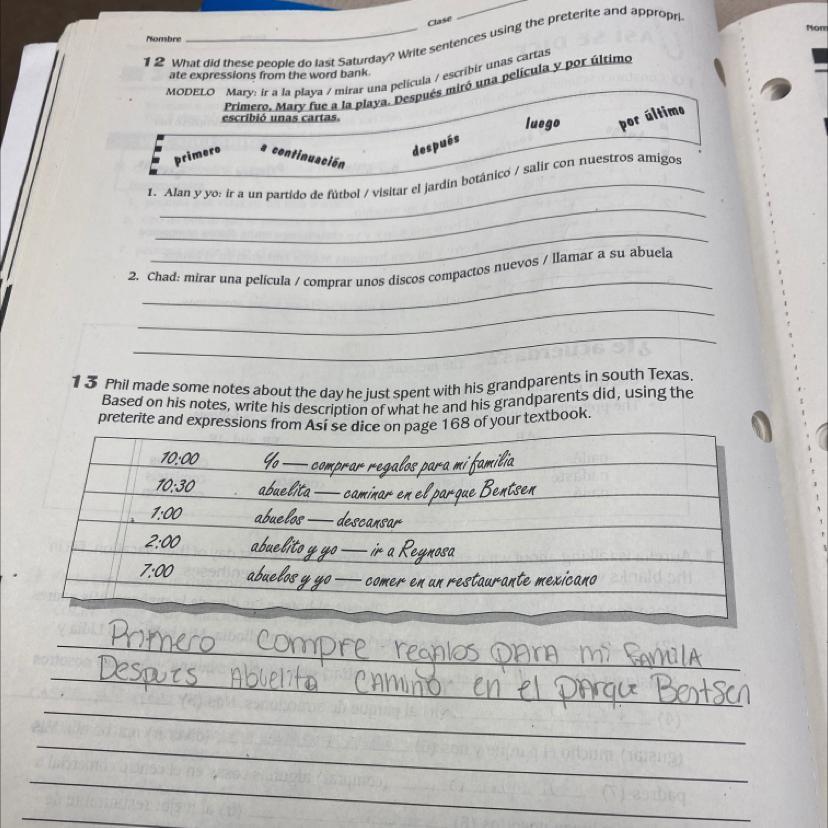 Nombre
Clase
12 What did these people do last Saturday? Write sentences using the preterite and appropri-
ate expressions from the word bank.
MODELO Mary: ir a la playa / mirar una película / escribir unas cartas
Primero, Mary fue a la playa. Después miró una película y por último
escribió unas cartas.
primero a continuación después luego por último
1. Alan y yo: ir a un partido de fútbol / visitar el jardín botánico / salir con nuestros amigos
2. Chad: mirar una película / comprar unos discos compactos nuevos / llamar a su abuela
13 Phil made some notes about the day he just spent with his grandparents in south Texas.
Based on his notes, write his description of what he and his grandparents did, using the
preterite and expressions from Así se dice on page 168 of your textbook.
10:00 Yo — comprar regalos para mi familia
10:30 abuelita — caminar en el parque Bentsen
1:00 abuelos — descansar
2:00 abuelito y yo — ir a Reynosa
7:00 abuelos y yo — comer en un restaurante mexicano
Primero compre regalos para mi familA
Despues Abuelita camino en el parque Bentsen